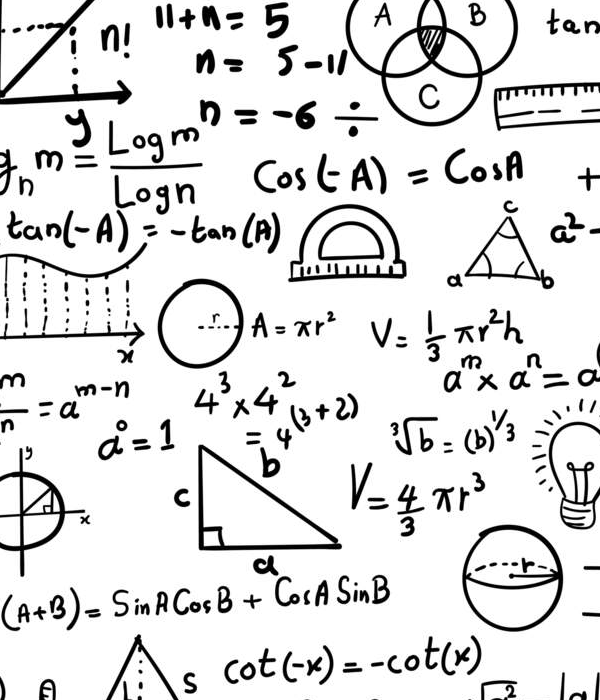 n!
11+n = 5
n = 5-11
n = -6 ÷
A B
C
tan
y
m = Log m / Log n
n
Cos(-A) = CosA
+
tan(-A) = -tan(A)
c
a b
a²-
x
r
A = πr²
V = 1/3 πr²h
aᵐ x aⁿ = a
m/n = aᵐ⁻ⁿ
4³ x 4²
= 4⁽³⁺²⁾
a⁰ = 1
³√b = (b)^1/3
y
x
c
b
a
V = 4/3 πr³
r
(A+B) = SinA CosB + CosA SinB
S
cot(-x) = -cot(x)